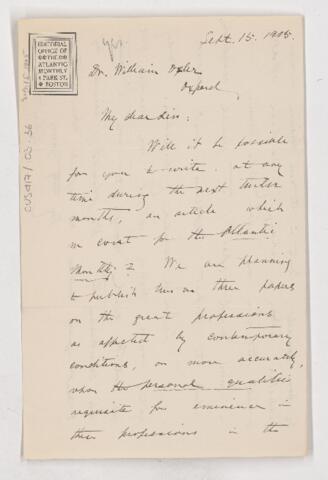 EDITORIAL
OFFICE OF
THE
ATLANTIC
MONTHLY
4 PARK ST.
BOSTON
yes.
Sept. 15. 1905.
Dr. William Osler
Oxford
My dear Sir:
Will it be possible
for you to write, at any
time during the next twelve
months, an article which
we covet for the Atlantic
Monthly? We are planning
to publish two or three papers
on the great professions
as affected by contemporary
conditions, or more accurately,
upon the personal qualities
requisite for eminence in
these professions in the
CUS417/03.36